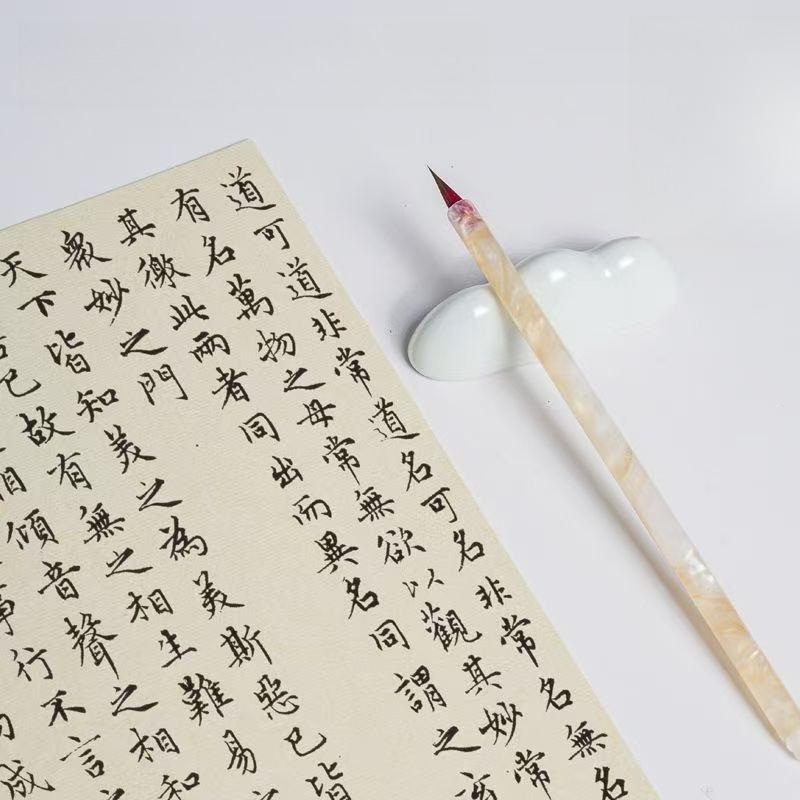 道可道非常道名可名非常名無名
有名萬物之母常無欲以觀其妙常
其徼此兩者同出而異名同謂之玄
眾妙之門
天下皆知美之為美斯惡已皆
已故有無之相生難易
相傾音聲之相和
事行不言
成